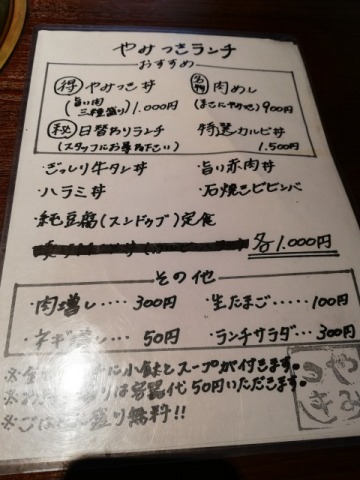 やみつきランチ
おすすめ
得 やみつき丼
(旨い肉三種盛り) 1.000円
名物 肉めし
(まさにやみつき) 900円
秘 日替わりランチ
(スタッフにお尋ね下さい)
特選カルビ丼
1.500円
・ぎっしり牛タン丼
・旨い赤肉丼
・ハラミ丼
・石焼きビビンバ
・純豆腐(スンドゥブ)定食
各1.000円
その他
・肉増し‥‥ 300円
・生たまご‥‥‥100円
・ネギ増し‥‥ 50円
・ランチサラダ‥‥300円
に小鉢とスープが付きます。
りは容器代50円いただきます。
※ごはん 盛り無料!!
やみつき